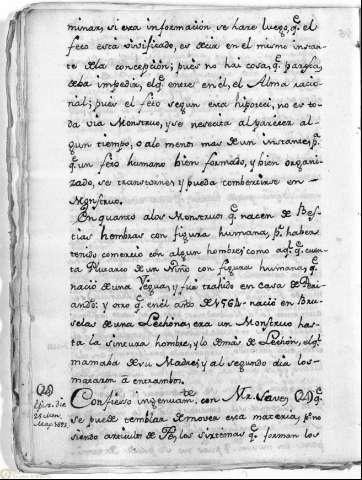 minar, si esta información se hace luego, q.e el
feto esta vivificado, es decir en el mismo instan-
te dela concepcion; pues no hai cosa, q.e parezca,
deba impedir, el q.e entre en él, el Alma racio-
nal; pues el feto segun esta hipotesi, no es to-
da via Monstruo, y se nesecita al parecer al-
gun tiempo, o alo menos mas de un instante, p.a
q.e un feto humano bien formado, y bien organi-
zado, se transtorne, y pueda combertirse en
Monstruo.
En quanto alos Monstruos q.e nacen de Bes-
tias hembras con figura humana, p.r haber
tenido comercio con algun hombre; como aq.l q.e cuen-
ta Plutarco de un Niño con figura humana, q.e
nació de una Yegua, y fue trahido en casa de Peri-
andò: y otro q.e en el año de 1564 nació en Bru-
selas de una Lechona, era un Monstruo has-
ta la sintura hombre, y lo demàs de Lechón, el q.l
mamaba de su Madre; y al segundo dia los
mataron à entrambos.
(24)
28
Confieso ingenuam.te con Mr. (24) q.e
se puede temblar de mover esta materia, p.o no
siendo articulo de Fè, los sistemas q.e forman los